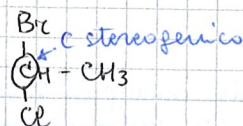 Br
C stereogenico
CH - CH3
Cl